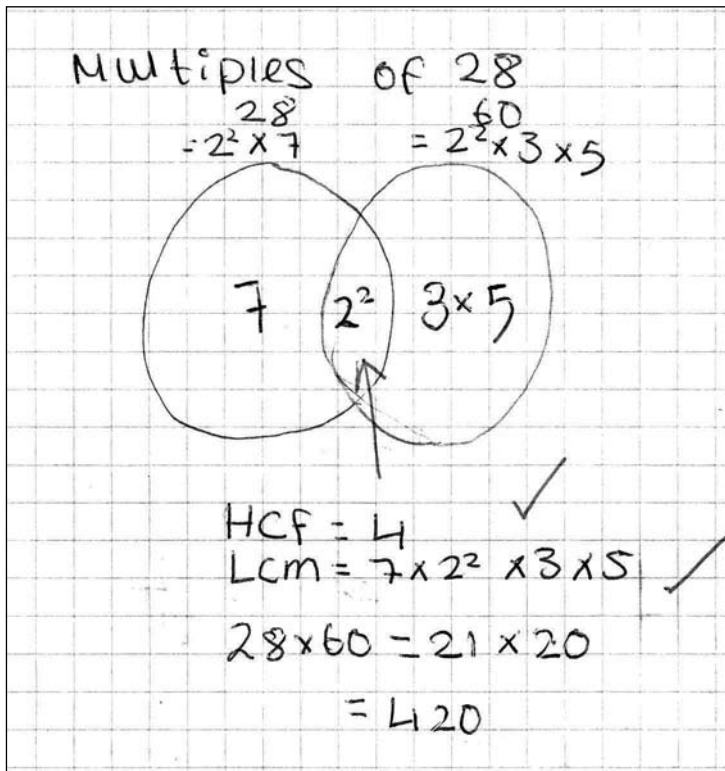 Multiples of 28
28 60
= 2² × 7 = 2² × 3 × 5
7 2² 3 × 5
HCf = 4
Lcm = 7 × 2² × 3 × 5
28 × 60 = 21 × 20
= 420